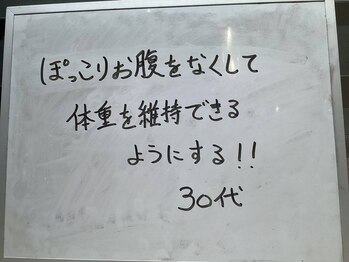 ぽっこりお腹をなくして
体重を維持できる
ようにする!!
30代